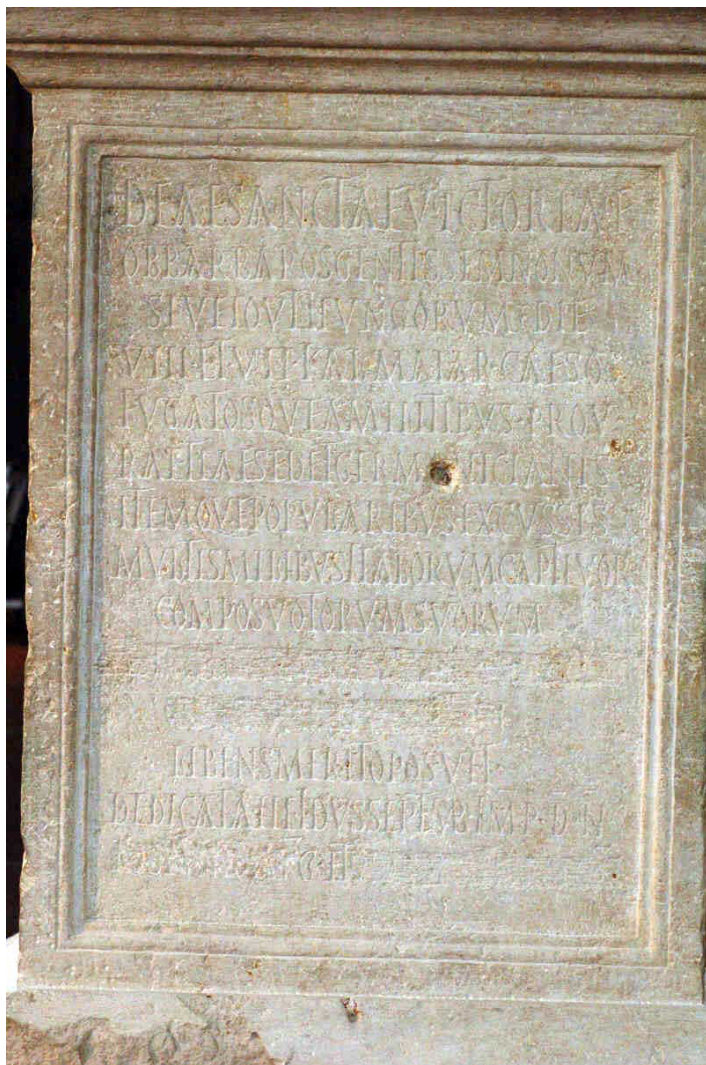 DEAE SANCTAE VICTORIAE
OB BARBAROS GENTIS SEMNONVM
SIVE IOVTHVNGORVM DIE
VIII ET VII KAL MAIAR CAESOS
FVGATOSQVE A MILITIBVS PROV
RAETIAE SED ET GERMANICIANIS
ITEMQVE POPVLARIBVS EXCVSSIS
MVLTIS MILIBVS ITALORVM CAPTIVOR
COMPOS VOTORVM SVORVM
LIBENS MERITO POSVIT
DEDICATA III IDVS SEPTEMB IMP D N
G ET